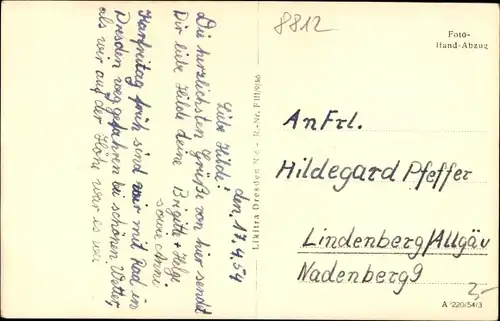 den, 17.4.54
Liebe Hilde!
Die herzlichsten Grüße von hier sendet
Dir liebe Hilde deine Brigitte + Helga
sowie Anni.
Karfreitag früh sind wir mit Rad in
Dresden weggefahren bei schönem Wetter,
als wir auf der Höhe war es
8812
Foto-
Hand-Abzug
An Frl.
Hildegard Pfeffer
Lindenberg/Allgäu
Nadenberg 9
Likitra Dresden N 6 - R.-Nr.
A 220/54/3